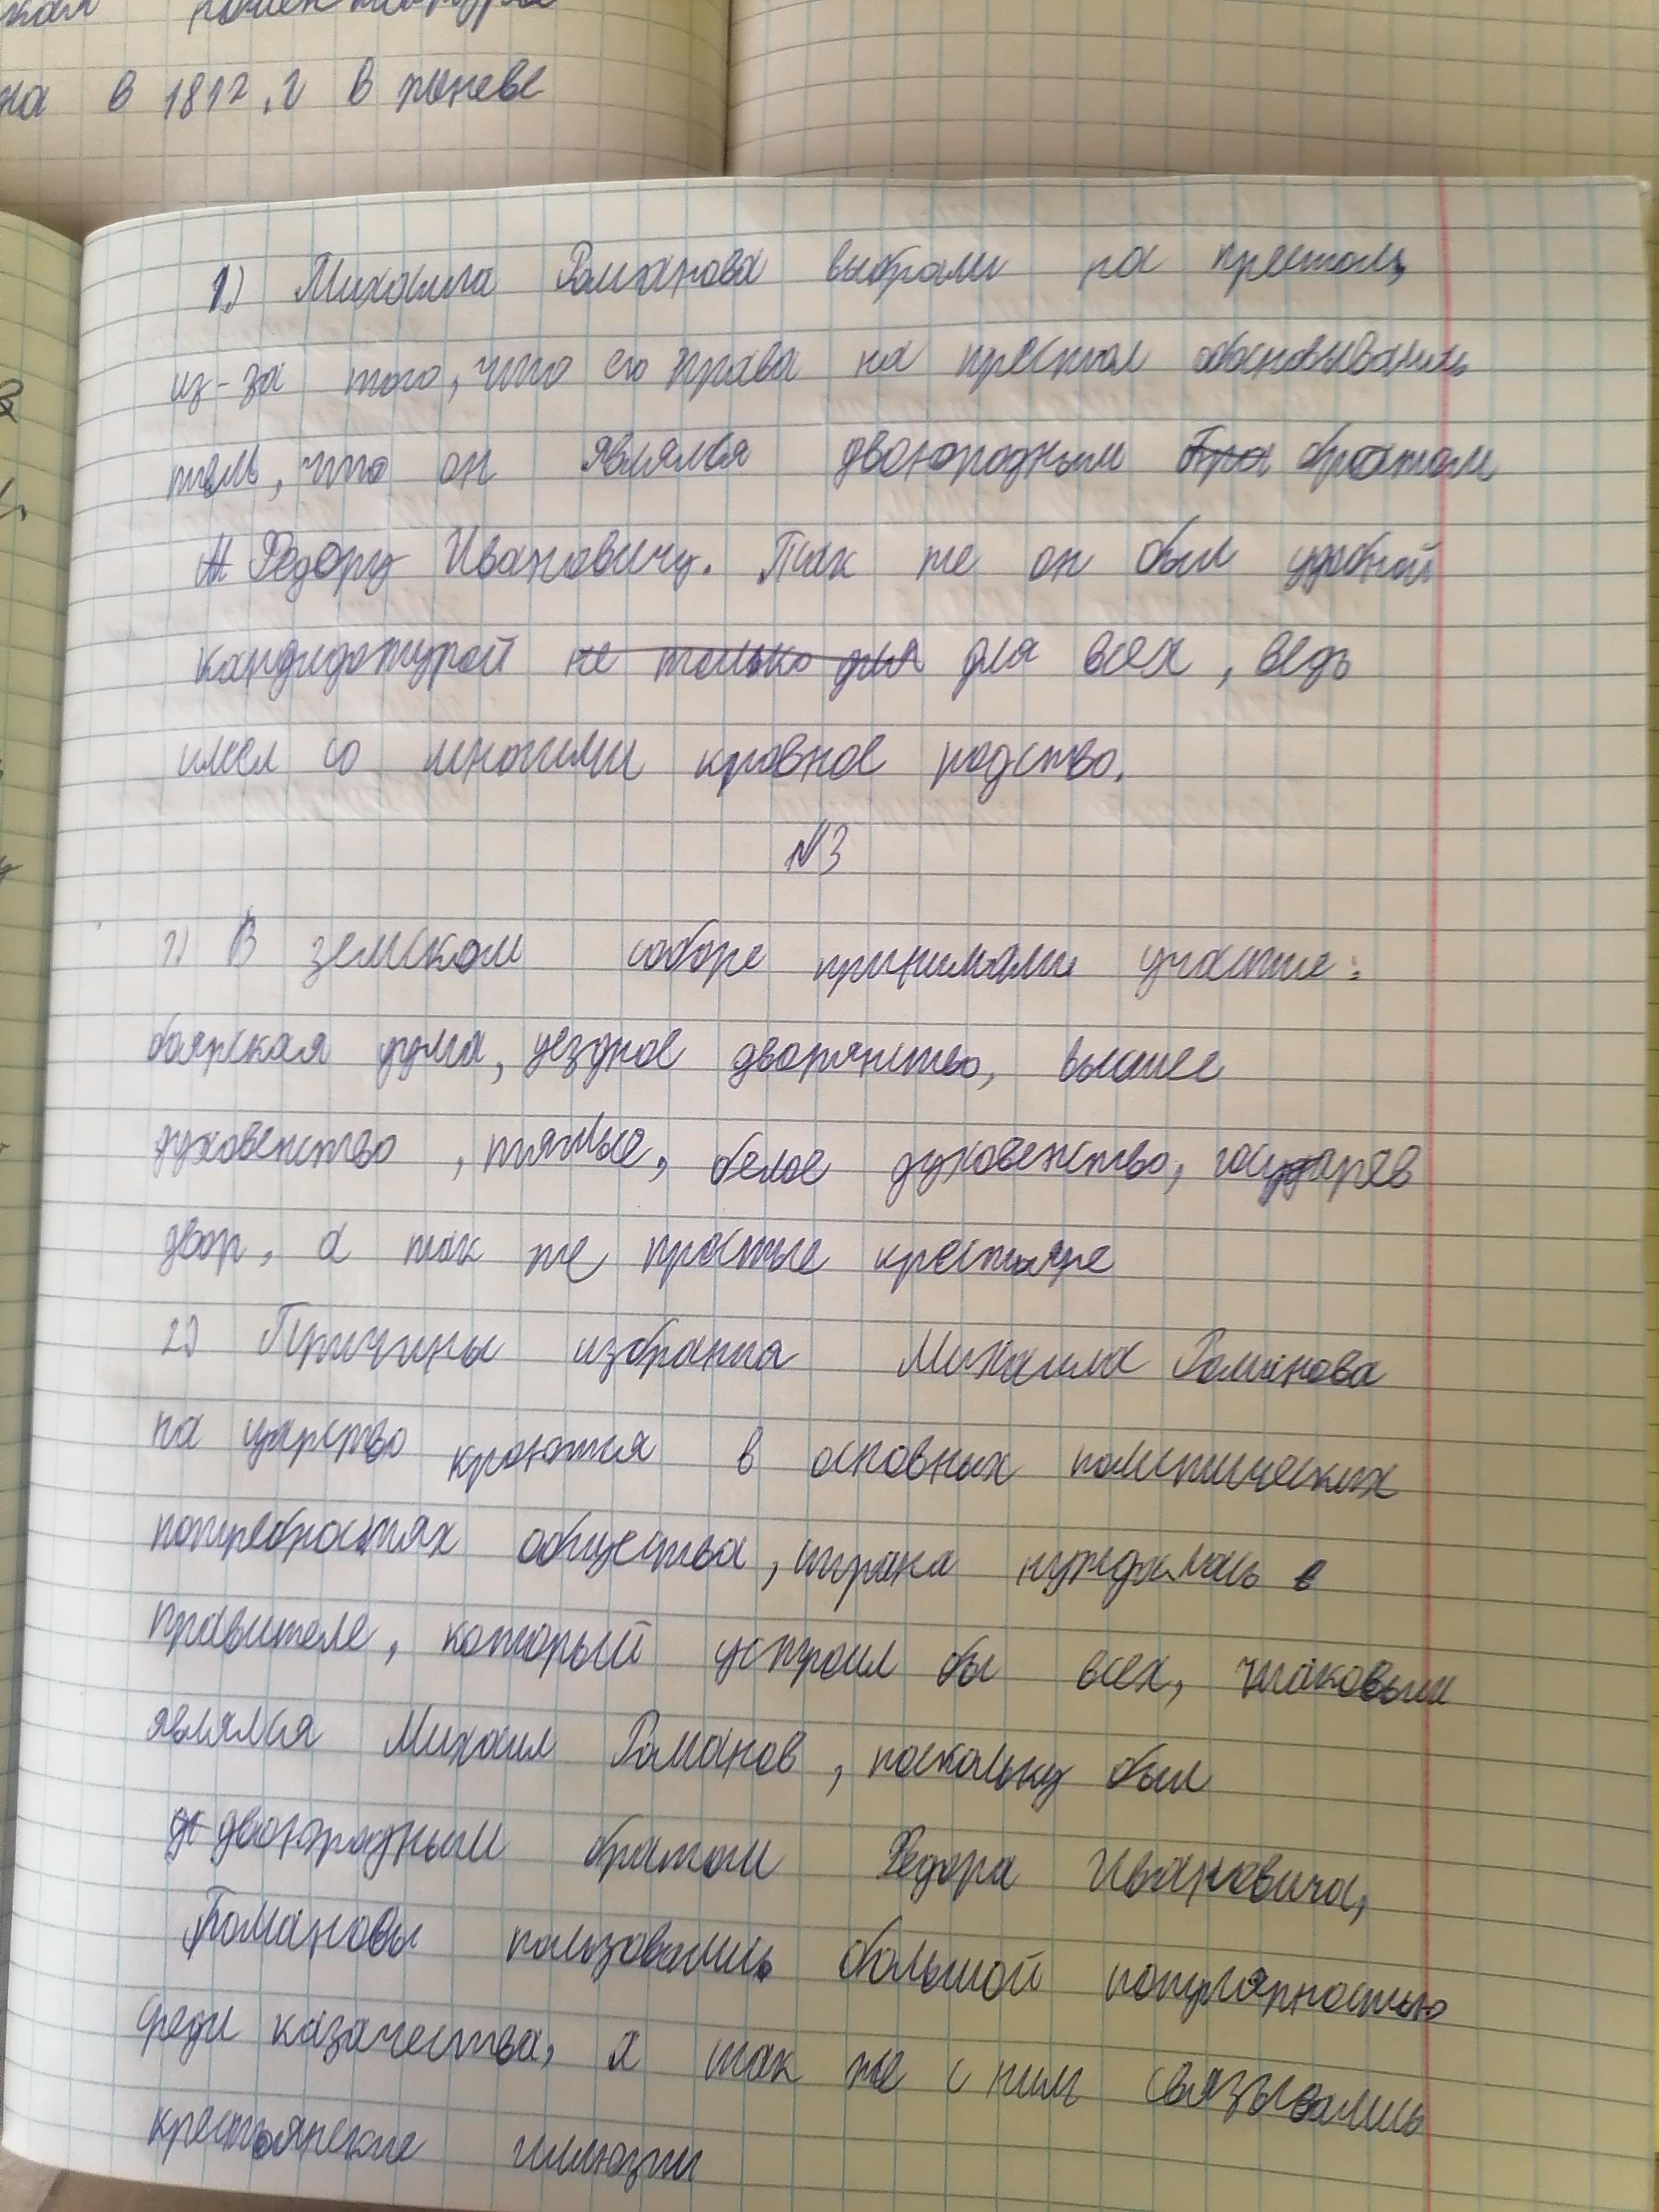 на в 1812.г в
1) Михаила Романова выбрали на престол,
из-за того, что его права на престол обосновывались
тем, что он являлся двоюродным бра братом
Федору Ивановичу. Так же он был удобной
кандидатурой не только для для всех, ведь
имел со многими кровное родство.
№3
1) В земском соборе принимали участие:
боярская дума, уездное дворянство, высшее
духовенство, тяглые, белое духовенство, государев
двор, а так же простые крестьяне
2) Причины избрания Михаила Романова
на царство кроются в основных политических
потребностях общества, страна нуждалась в
правителе, который устроил бы всех, таковым
являлся Михаил Романов, поскольку был
двоюродным братом Федора Ивановича,
Романовы пользовались большой популярностью
среди казачества, а так же с ним связывались
крестьянские иллюзии